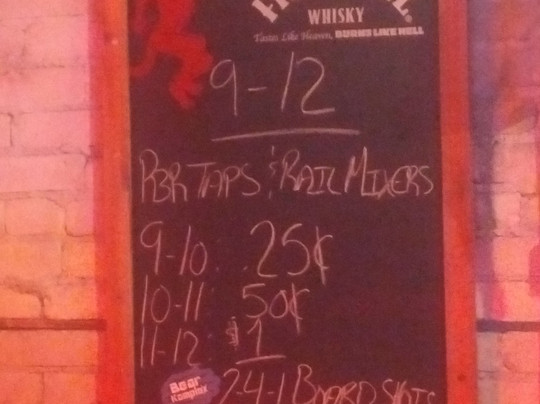 WHISKY
Tastes Like Heaven, BURNS LIKE HELL
9-12
PBR TAPS & RAIL MIXERS
9-10 .. 25¢
10-11 50¢
11-12 $1
2-4-1 BOARD SHOTS